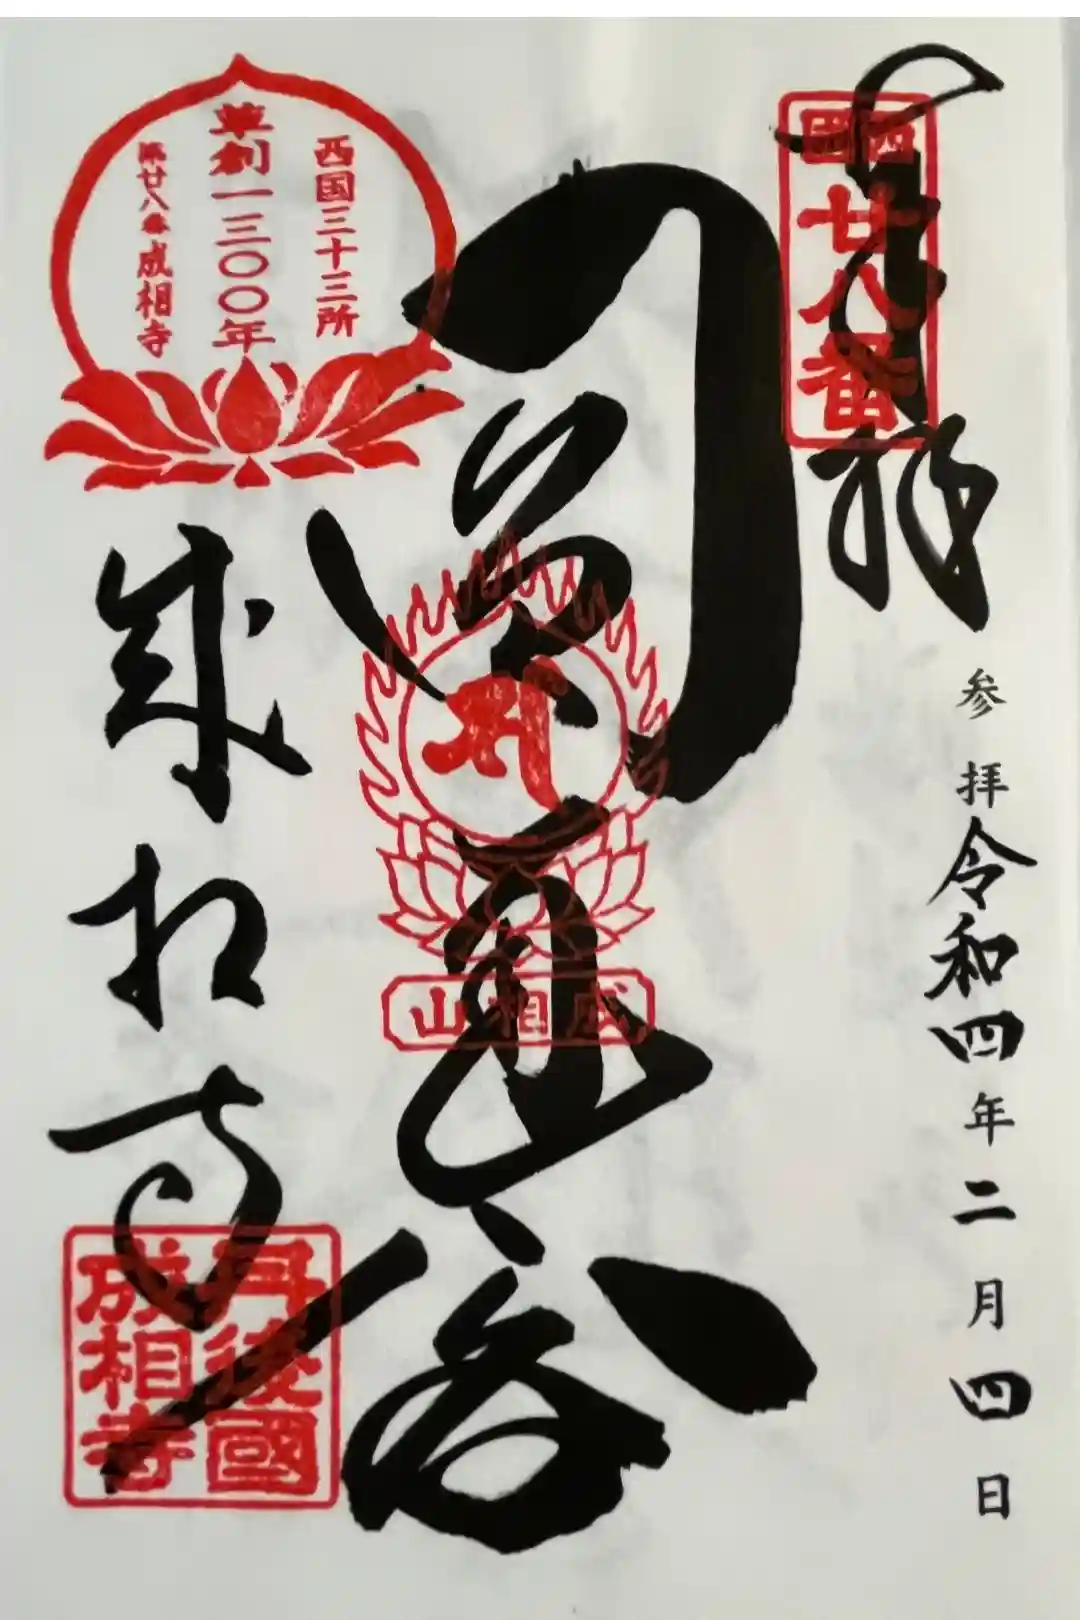 西国
廿八番
奉拝
参拝令和四年二月四日
西国三十三所
草創一三〇〇年
第廿八番成相寺
成相山
成相寺
丹後國
成相寺